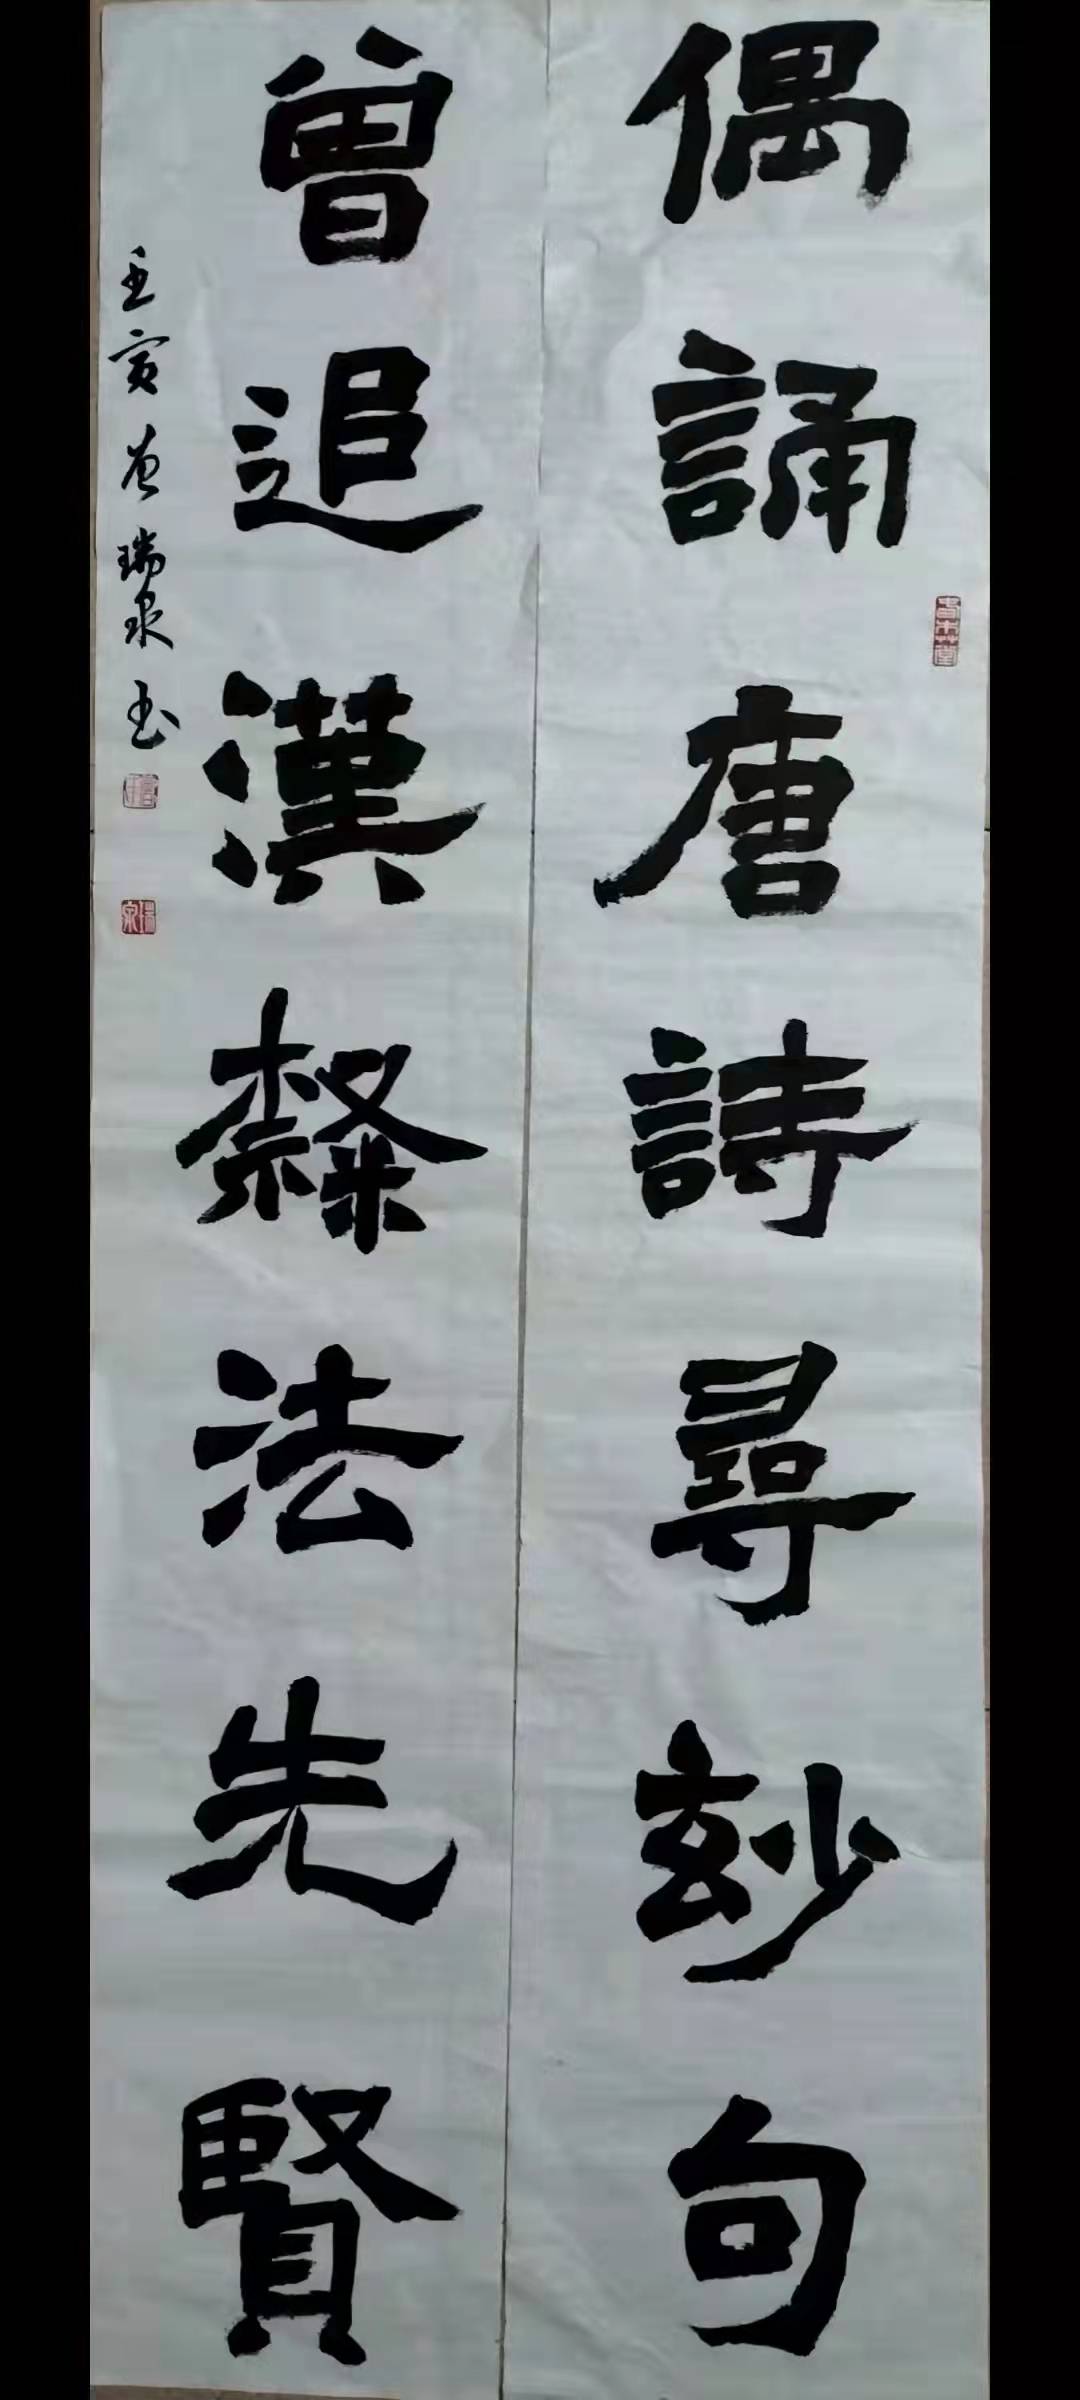 偶誦唐詩尋玅句
曾追漢隸法先賢
壬寅 瑞泉